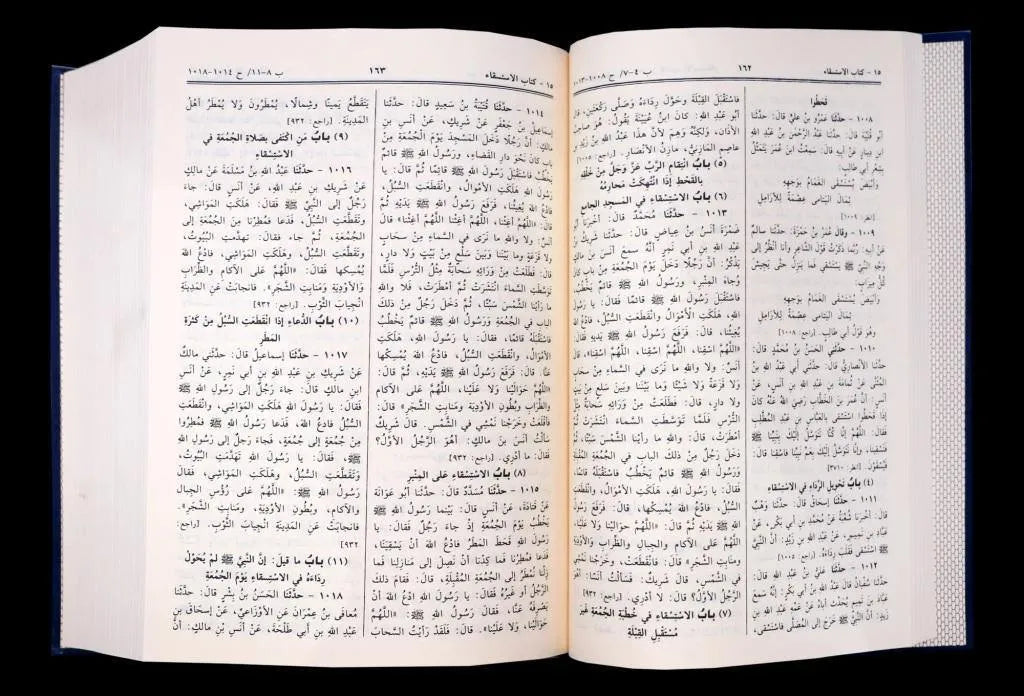 ١٥ - كتاب الاستسقاء
١٦٢
ب ٤-٧/ ح ١٠٠٨-١٠١٣
قَحَطُوا
١٠٠٨ - حدَّثنَا عَمْرُو بنُ عليٍّ قالَ: حدَّثنَا
أبو قُتَيْبَةَ قالَ: حدَّثنَا عَبْدُ الرَّحْمٰنِ بنُ عَبْدِ اللهِ
ابنِ دِينارٍ عَنْ أبيهِ قالَ: سَمِعْتُ ابنَ عُمَرَ يَتَمَثَّلُ
بِشِعْرِ أبي طالِبٍ:
وَأبْيَضَ يُسْتَسْقَى الغَمَامُ بوَجْهِهِ
ثِمَالَ اليَتَامَى عِصْمَةً لِلأرَامِلِ
[انظر: ١٠٠٩]
١٠٠٩ - وقالَ عُمَرُ بنُ حَمْزَةَ: حدَّثنَا سالمٌ
عَنْ أبيهِ: رُبَّمَا ذَكَرْتُ قَوْلَ الشَّاعِرِ وأنَا أنْظُرُ إلى
وَجْهِ النَّبيِّ ﷺ يَسْتَسْقِي فَما يَنْزِلُ حتَّى يَجِيشَ
كُلُّ مِيزَابٍ:
وَأبْيَضَ يُسْتَسْقَى الغَمَامُ بِوَجْهِهِ
ثِمَالَ اليَتَامَى عِصْمَةً لِلأرَامِلِ
وهُوَ قَوْلُ أبي طالبٍ. [راجع: ١٠٠٨]
١٠١٠ - حدَّثنَا الحَسَنُ بنُ مُحَمَّدٍ قالَ:
حدَّثنَا الأنْصَارِيُّ قالَ: حدَّثني أبي عَبْدُ اللهِ بنُ
المُثَنَّى عَنْ ثُمامَةَ بنِ عَبْدِ اللهِ بنِ أنَسٍ، عَنْ
أنَسٍ: أنَّ عُمَرَ بنَ الخَطَّابِ رَضِيَ اللهُ عَنْهُ كانَ
إذَا قَحَطُوا اسْتَسْقَى بالعَبَّاسِ بنِ عَبْدِ المُطَّلِبِ
فَقالَ: اللَّهُمَّ إنَّا كُنَّا نَتَوَسَّلُ إلَيْكَ بِنَبِيِّنَا ﷺ
فَتَسْقِينَا، وإنَّا نَتَوَسَّلُ إلَيْكَ بِعَمِّ نَبِيِّنَا فاسْقِنَا. قالَ:
فَيُسْقَوْنَ. [انظر: ٣٧١٠]
(٤) بَابُ تَحْوِيلِ الرِّدَاءِ في الاسْتِسْقاءِ
١٠١١ - حدَّثنَا إسْحَاقُ قالَ: حدَّثنَا وَهْبٌ
قالَ: أخْبرَنَا شُعْبَةُ عَنْ مُحَمَّدِ بنِ أبي بَكْرٍ، عَنْ
عَبَّادِ بنِ تَمِيمٍ، عَنْ عَبْدِ اللهِ بنِ زَيْدٍ: أنَّ النَّبيَّ
ﷺ اسْتَسْقَى فَقَلَبَ رِدَاءَهُ. [راجع: ١٠٠٥]
١٠١٢ - حدَّثنَا عَليُّ بنُ عَبْدِ اللهِ قالَ:
حدَّثنَا سُفْيَانُ قالَ عَبْدُ اللهِ بنُ أبي بَكْرٍ: إنَّهُ سَمِعَ
عَبَّادَ بنَ تَمِيمٍ يُحَدِّثُ أبَاهُ عَنْ عَمِّهِ عَبْدِ اللهِ بنِ
زَيْدٍ: أنَّ النَّبيَّ ﷺ خَرَجَ إلى المُصَلَّى فاسْتَسْقَى،
فاسْتَقْبَلَ القِبْلَةَ وحَوَّلَ رِدَاءَهُ وصَلَّى رَكْعَتَيْنِ. قالَ
أبُو عَبْدِ اللهِ: كانَ ابنُ عُيَيْنَةَ يَقُولُ: هُوَ صاحِبُ
الأذَانِ، ولكِنَّهُ وَهِمَ لأنَّ هذا عَبْدُ اللهِ بنُ زَيْدِ بنِ
عاصِمٍ المَازِنيُّ، مازِنُ الأنْصَارِ. [راجع: ١٠٠٥]
(٥) بابُ انْتِقامِ الرَّبِّ عَزَّ وَجَلَّ مِنْ خَلْقِهِ
بالقَحْطِ إذَا انْتُهِكَتْ مَحَارِمُهُ
(٦) بابُ الاسْتِسْقاءِ في المَسْجِدِ الجَامِعِ
١٠١٣ - حدَّثنَا مُحَمَّدٌ قالَ: أخْبرَنَا أبُو
ضَمْرَةَ أنَسُ بنُ عِيَاضٍ قالَ: حدَّثنَا شَرِيكُ بنُ
عَبْدِ اللهِ بنِ أبي نَمِرٍ أنَّهُ سَمِعَ أنَسَ بنَ مَالكٍ
يَذْكُرُ: أنَّ رَجُلًا دَخَلَ يَوْمَ الجُمُعَةِ مِنْ بابٍ كانَ
وُجاهَ المِنْبرِ، ورَسُولُ اللهِ ﷺ قائمٌ يَخْطُبُ
فاسْتَقْبَلَ رَسُولَ اللهِ ﷺ قائمًا. فَقالَ: يا رَسُولَ
اللهِ، هَلَكَتِ الأمْوَالُ، وانْقَطَعَتِ السُّبُلُ، فادْعُ اللهَ
يُغِيثُنا، قالَ: فَرَفَعَ رَسُولُ اللهِ ﷺ يَدَيْهِ فَقالَ:
«اللَّهُمَّ اسْقِنَا، اللَّهُمَّ اسْقِنَا، اللَّهُمَّ اسْقِنَا». قالَ
أنَسٌ: وَلَا واللهِ ما نَرَى في السَّماءِ مِنْ سَحَابٍ
وَلَا قَزَعَةً وَلَا شَيْئًا وَمَا بَيْنَنَا وبَيْنَ سَلْعٍ مِنْ بَيْتٍ
ولا دارٍ، قالَ: فَطَلَعَتْ مِنْ وَرَائِهِ سَحابَةٌ مِثْلُ
التُّرْسِ فَلَمَّا تَوَسَّطَتِ السَّمَاءَ انْتَشَرَتْ ثُمَّ
أمْطَرَتْ، قالَ: واللهِ ما رَأيْنا الشَّمْسَ سِتًّا، ثُمَّ
دَخَلَ رَجُلٌ مِنْ ذلكَ البابِ في الجُمُعَةِ المُقْبِلَةِ
ورَسُولُ اللهِ ﷺ قائمٌ يَخْطُبُ، فاسْتَقْبَلَهُ قائمًا،
فَقالَ: يا رَسُولَ اللهِ، هَلَكَتِ الأمْوَالُ، وانْقَطَعَتِ
السُّبُلُ، فادْعُ اللهَ يُمْسِكْها، قالَ: فَرَفَعَ رَسُولُ اللهِ
ﷺ يَدَيْهِ ثُمَّ قالَ: «اللَّهُمَّ حَوَالَيْنا وَلَا عَلَيْنَا،
اللَّهُمَّ عَلى الآكَامِ والجِبالِ والظِّرَابِ والأوْدِيَةِ
ومَنابِتِ الشَّجَرِ» قالَ: فانْقَطَعَتْ، وخَرَجْنَا نَمْشِي
في الشَّمْسِ، قالَ شَرِيكٌ: فَسَألْتُ أنَسًا: أهُوَ
الرَّجُلُ الأوَّلُ؟ قالَ: لا أدْرِي. [راجع: ٩٣٢]
(٧) بابُ الاسْتِسْقاءِ في خُطْبَةِ الجُمُعَةِ غَيْرَ
مُسْتَقْبِلِ القِبْلَةِ
١٥ - كتاب الاستسقاء
١٦٣
ب ٨-١١/ ح ١٠١٤-١٠١٨
١٠١٤ - حدَّثنَا قُتَيْبَةُ بنُ سَعِيدٍ قالَ: حدَّثنَا
إسْمَاعِيلُ بنُ جَعْفَرٍ عَنْ شَرِيكٍ، عَنْ أنَسِ بنِ
مالكٍ: أنَّ رَجُلًا دَخَلَ المَسْجِدَ يَوْمَ الجُمُعَةِ مِنْ
بابٍ كانَ نَحْوَ دارِ القَضاءِ، ورَسُولُ اللهِ ﷺ قائمٌ
يَخْطُبُ فاسْتَقْبَلَ رَسُولَ اللهِ ﷺ قائمًا ثُمَّ قالَ: يا
رَسُولَ اللهِ هَلَكَتِ الأمْوَالُ، وانْقَطَعَتِ السُّبُلُ،
فادْعُ اللهَ يُغِيثُنا، فَرَفَعَ رَسُولُ اللهِ ﷺ يَدَيْهِ ثُمَّ
قالَ: «اللَّهُمَّ أغِثْنا، اللَّهُمَّ أغِثْنا، اللَّهُمَّ أغِثْنا» قالَ
أنَسٌ: ولا واللهِ ما نَرَى في السَّماءِ مِنْ سَحابٍ
ولا قَزَعَةً وما بَيْنَنا وبَيْنَ سَلْعٍ مِنْ بَيْتٍ ولا دارٍ،
قالَ: فَطَلَعَتْ مِنْ وَرَائِهِ سَحَابَةٌ مِثْلُ التُّرْسِ فَلَمَّا
تَوَسَّطَتِ السَّماءَ انْتَشَرَتْ ثُمَّ أمْطَرَتْ، فَلا واللهِ
ما رَأيْنا الشَّمْسَ سَبْتًا، ثُمَّ دَخَلَ رَجُلٌ مِنْ ذلكَ
الباب في الجُمُعَةِ ورَسُولُ اللهِ ﷺ قائمٌ يَخْطُبُ
فاسْتَقْبَلَهُ قائمًا، فقالَ: يا رَسُولَ اللهِ، هَلَكَتِ
الأمْوَالُ، وانْقَطَعَتِ السُّبُلُ، فادْعُ اللهَ يُمْسِكْها
عَنَّا. قالَ: فَرَفَعَ رَسُولُ اللهِ ﷺ يَدَيْهِ، ثُمَّ قالَ:
«اللَّهُمَّ حَوَالَيْنا وَلَا عَلَيْنَا، اللَّهُمَّ عَلى الآكامِ
والظِّرَابِ وبُطُونِ الأوْدِيَةِ ومَنابِتِ الشَّجَرِ» قالَ:
فأقْلَعَتْ وخَرَجْنَا نَمْشِي في الشَّمْسِ. قالَ شَرِيكٌ
سَألْتُ أنَسَ بنَ مالكٍ: أهُوَ الرَّجُلُ الأوَّلُ؟
فَقالَ: ما أدْرِي. [راجع: ٩٣٢]
(٨) بابُ الاسْتِسْقاءِ عَلى المِنْبرِ
١٠١٥ - حدَّثنَا مُسَدَّدٌ قالَ: حدَّثنَا أبُو عَوَانَةَ
عَنْ قَتَادَةَ، عَنْ أنَسٍ قالَ: بَيْنَما رَسُولُ اللهِ ﷺ
يَخْطُبُ يَوْمَ الجُمُعَةِ إذْ جاءَ رَجُلٌ فَقالَ: يا
رَسُولَ اللهِ قَحَطَ المَطَرُ فادْعُ اللهَ أنْ يَسْقِيَنَا،
فَدَعا فمُطِرْنا فَما كِدْنا أنْ نَصِلَ إلى مَنازِلِنا فَما
زِلْنا نُمْطَرُ إلى الجُمُعَةِ المُقْبِلَةِ. قالَ: فَقامَ ذلكَ
الرَّجُلُ أوْ غَيرُهُ فَقالَ: يا رَسُولَ اللهِ ادْعُ اللهَ أنْ
يَصْرِفَهُ عَنَّا. فَقالَ رَسُولُ اللهِ ﷺ: «اللَّهُمَّ
حَوَالَيْنا، وَلَا عَلَيْنا». قالَ: فَلَقَدْ رَأيْتُ السَّحَابَ
يَتَقَطَّعُ يَمِينًا وشِمالًا، يُمْطَرُونَ وَلَا يُمْطَرُ أهْلُ
المَدِينَةِ. [راجع: ٩٣٢]
(٩) بابُ مَنِ اكْتَفَى بصَلاةِ الجُمُعَةِ في
الاسْتِسْقاءِ
١٠١٦ - حدَّثنَا عَبْدُ اللهِ بنُ مَسْلَمَةَ عَنْ مالكٍ
عَنْ شَرِيكِ بنِ عَبْدِ اللهِ، عَنْ أنَسٍ قالَ: جاءَ
رَجُلٌ إلى النَّبيِّ ﷺ فَقالَ: هَلَكَتِ المَوَاشِي،
وتَقَطَّعَتِ السُّبُلُ، فَدَعا فمُطِرْنا مِنَ الجُمُعَةِ إلى
الجُمُعَةِ، ثُمَّ جاءَ فَقالَ: تَهَدَّمتِ البُيُوتُ،
وتَقَطَّعَتِ السُّبُلُ، وهَلَكَتِ المَوَاشِي، فادْعُ اللهَ
يُمْسِكْها فقالَ: «اللَّهُمَّ عَلى الآكامِ والظِّرَابِ
والأوْدِيَةِ ومَنابِتِ الشَّجَرِ». فانجابَتْ عَنِ المَدِينَةِ
انْجِيابَ الثَّوْبِ. [راجع: ٩٣٢]
(١٠) بابُ الدُّعاءِ إذَا انْقَطَعَتِ السُّبُلُ مِنْ كَثْرَةِ
المَطَرِ
١٠١٧ - حدَّثنَا إسماعيلُ قالَ: حدَّثني مالكٌ
عَنْ شَرِيكِ بنِ عَبْدِ اللهِ بنِ أبي نَمِرٍ، عَنْ أنَسِ
ابنِ مالكٍ قالَ: جاءَ رَجُلٌ إلى رَسُولِ اللهِ ﷺ
فَقالَ: يا رَسُولَ اللهِ هَلَكَتِ المَوَاشِي، وانْقَطَعَتِ
السُّبُلُ فادْعُ اللهَ، فَدَعا رَسُولُ اللهِ ﷺ فمُطِرُوا
مِنْ جُمُعَةٍ إلى جُمُعَةٍ، فَجاءَ رَجُلٌ إلى رَسُولِ اللهِ
ﷺ، فَقالَ: يا رَسُولَ اللهِ تَهَدَّمَتِ البُيُوتُ،
وتَقَطَّعَتِ السُّبُلُ، وهَلَكَتِ المَوَاشِي، فَقالَ
رَسُولُ اللهِ ﷺ: «اللَّهُمَّ عَلى رُؤُسِ الجِبالِ
والآكامِ، وبُطُونِ الأوْدِيَةِ، ومَنابِتِ الشَّجَرِ».
فانجابَتْ عَنِ المَدِينَةِ انْجِيابَ الثَّوْبِ. [راجع:
٩٣٢]
(١١) بابُ ما قيلَ: إنَّ النَّبيَّ ﷺ لَمْ يُحَوِّلْ
رِدَاءَهُ في الاسْتِسْقاءِ يَوْمَ الجُمُعَةِ
١٠١٨ - حدَّثنَا الحَسَنُ بنُ بِشْرٍ قالَ: حدَّثنَا
مُعافَى بنُ عِمْرَانَ عَنِ الأوْزَاعيِّ، عَنْ إسْحَاقَ بنِ
عَبْدِ اللهِ بنِ أبي طَلْحَةَ، عَنْ أنَسِ بنِ مالكٍ: أنَّ